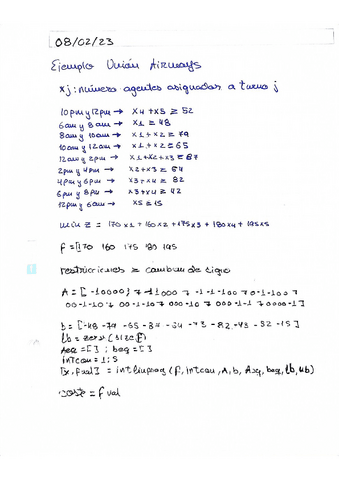 08/02/23
Ejemplo Unión Airways
xj: número agentes asignados a turno j
10pm y 12pm → x4 + x5 ≥ 52
6am y 8am → x1 ≥ 48
8am y 10am → x1 + x2 ≥ 79
10am y 12am → x1 + x2 ≥ 65
12am y 2pm → x1 + x2 + x3 ≥ 87
2pm y 4pm → x2 + x3 ≥ 64
4pm y 6pm → x3 + x4 ≥ 82
6pm y 8pm → x3 + x4 ≥ 42
12pm y 6am → x5 ≥ 15
min Z = 170x1 + 160x2 + 175x3 + 180x4 + 195x5
f = [170 160 175 180 195
restricciones ≥ cambian de signo
A = [ -10000; -1-1000
b = [-48 -79 -65 -87 -64 -73 -82 -43 -52 -15]
lb = zeros(size(f))
Aeq = [ ]; beq = [ ]
intcon = 1:5
[x, fval] = intlinprog (f, intcon, A, b, Aeq, beq, lb, ub)
cost = fval